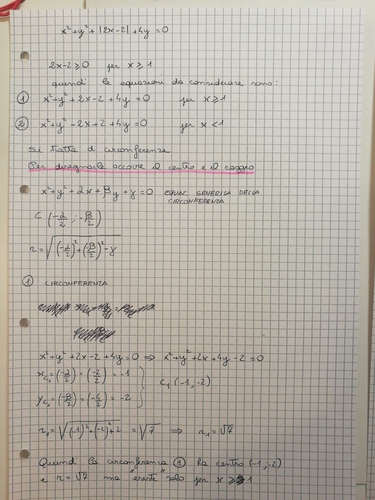 x²+y²+|2x-2|+4y=0
2x-2≥0 per x≥1
quindi le equazioni da considerare sono:
① x²+y²+2x-2+4y=0 per x≥1
② x²+y²-2x+2+4y=0 per x<1
Si tratta di circonferenze
Per disegnarle occorre il centro e il raggio
x²+y²+αx+βy+γ=0 EQUAZ GENERICA DELLA
CIRCONFERENZA
C(-α/2; -β/2)
r=√((-α/2)²+(β/2)²-γ)
① CIRCONFERENZA
x²+y²+2x-2+4y=0 ⇒ x²+y²+2x+4y-2=0
x_C₁=(-α/2)=(-2/2)=-1
C₁(-1,-2)
y_C₁=(-β/2)=(-4/2)=-2
r₁=√((-1)²+(-2)²+2)=√7 ⇒ r₁=√7
Quindi la circonferenza ① ha centro (-1,-2)
e r=√7 ma esiste solo per x≥1